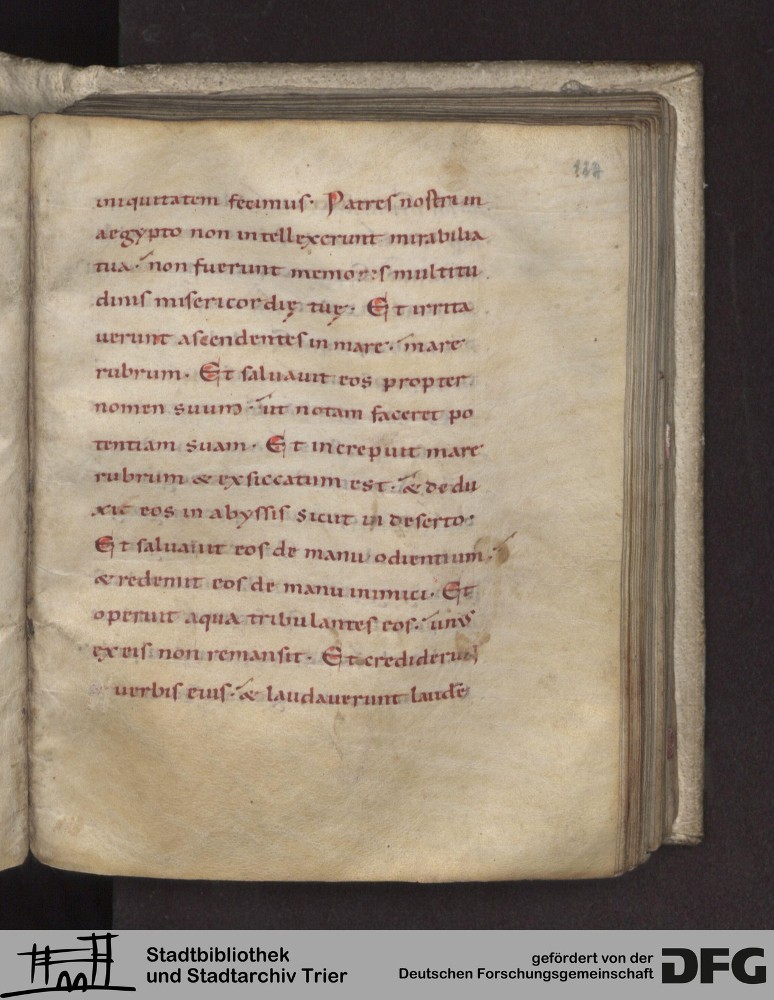 iniquitatem fecimus. Patres nostri in
aegypto non intellexerunt mirabilia
tua. non fuerunt memores multitu
dinis misericordię tuę. Et irrita
uerunt ascendentes in mare. mare
rubrum. Et saluauit eos propter
nomen suum. ut notam faceret po
tentiam suam. Et increpuit mare
rubrum & exsiccatum est. & dedu
xit eos in abyssis sicut in deserto.
Et saluauit eos de manu odientium.
& redemit eos de manu inimici. Et
operuit aqua tribulantes eos. unus
ex eis non remansit. Et crediderunt
uerbis eius. & laudauerunt laudē
Stadtbibliothek
und Stadtarchiv Trier
gefördert von der
Deutschen Forschungsgemeinschaft
DFG